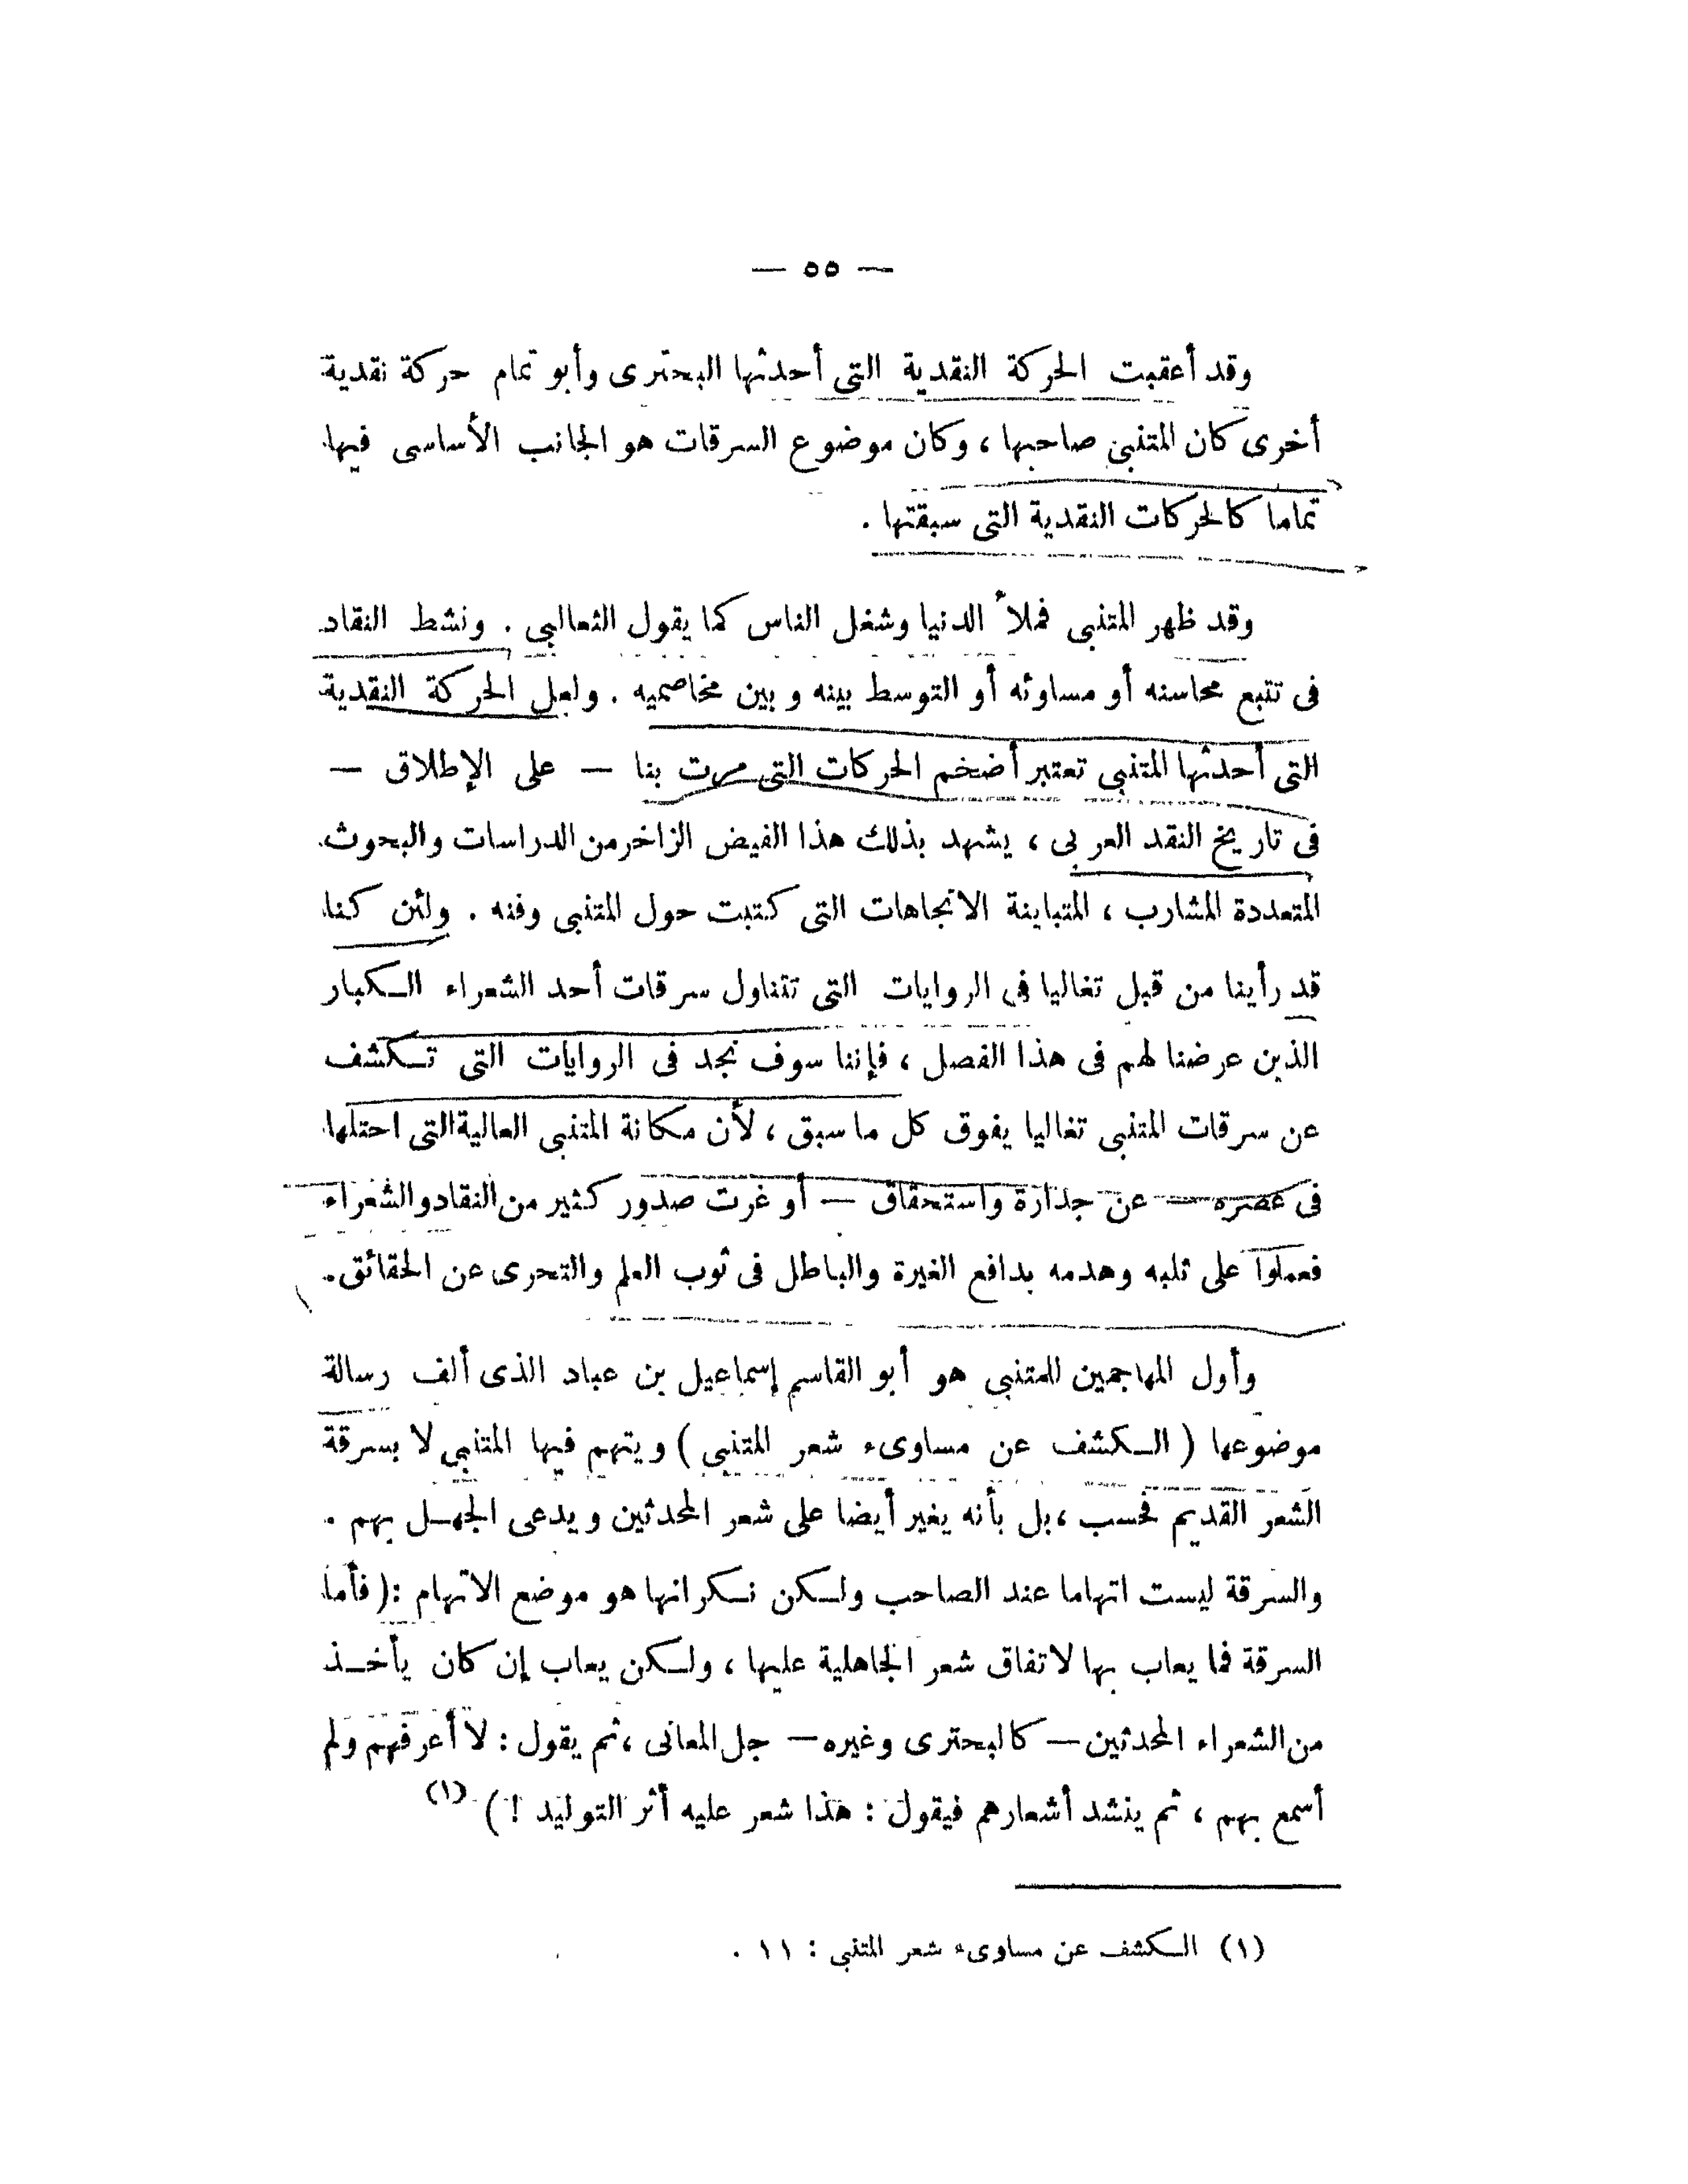 — ٥٥ —
وقد أعقبت الحركة النقدية التى أحدثها البحترى وأبو تمام حركة نقدية
أخرى كان المتنبى صاحبها ، وكان موضوع السرقات هو الجانب الأساسى فيها
تماما كالحركات النقدية التى سبقتها .
وقد ظهر المتنبى فملأ الدنيا وشغل الناس كما يقول الثعالبى . ونشط النقاد
فى تتبع محاسنه أو مساوئه أو التوسط بينه و بين مخاصميه . ولعل الحركة النقدية
التى أحدثها المتنبى تعتبر أضخم الحركات التى مرت بنا — على الإطلاق —
فى تاريخ النقد العربى ، يشهد بذلك هذا الفيض الزاخر من الدراسات والبحوث
المتعددة المشارب ، المتباينة الاتجاهات التى كتبت حول المتنبى وفنه . ولئن كنا
قد رأينا من قبل تغاليا فى الروايات التى تتناول سرقات أحد الشعراء الكبار
الذين عرضنا لهم فى هذا الفصل ، فإننا سوف نجد فى الروايات التى تكشف
عن سرقات المتنبى تغاليا يفوق كل ما سبق ، لأن مكانة المتنبى العالية التى احتلها
فى عصره — عن جدارة واستحقاق — أو غرت صدور كثير من النقاد والشعراء
فعملوا على ثلبه وهدمه بدافع الغيرة والباطل فى ثوب العلم والتحرى عن الحقائق .
وأول المهاجمين للمتنبى هو أبو القاسم إسماعيل بن عباد الذى ألف رسالة
موضوعها ( الكشف عن مساوىء شعر المتنبى ) ويتهم فيها المتنبى لا بسرقة
الشعر القديم فحسب ، بل بأنه يغير أيضا على شعر المحدثين ويدعى الجهل بهم .
والسرقة ليست اتهاما عند الصاحب ولكن نكرانها هو موضع الاتهام : ( فأما
السرقة فما يعاب بها لاتفاق شعر الجاهلية عليها ، ولكن يعاب إن كان يأخذ
من الشعراء المحدثين — كالبحترى وغيره — جل المعانى ، ثم يقول : لا أعرفهم ولم
أسمع بهم ، ثم ينشد أشعارهم فيقول : هذا شعر عليه أثر التوليد ! ) (١)
(١) الكشف عن مساوىء شعر المتنبى : ١١ .